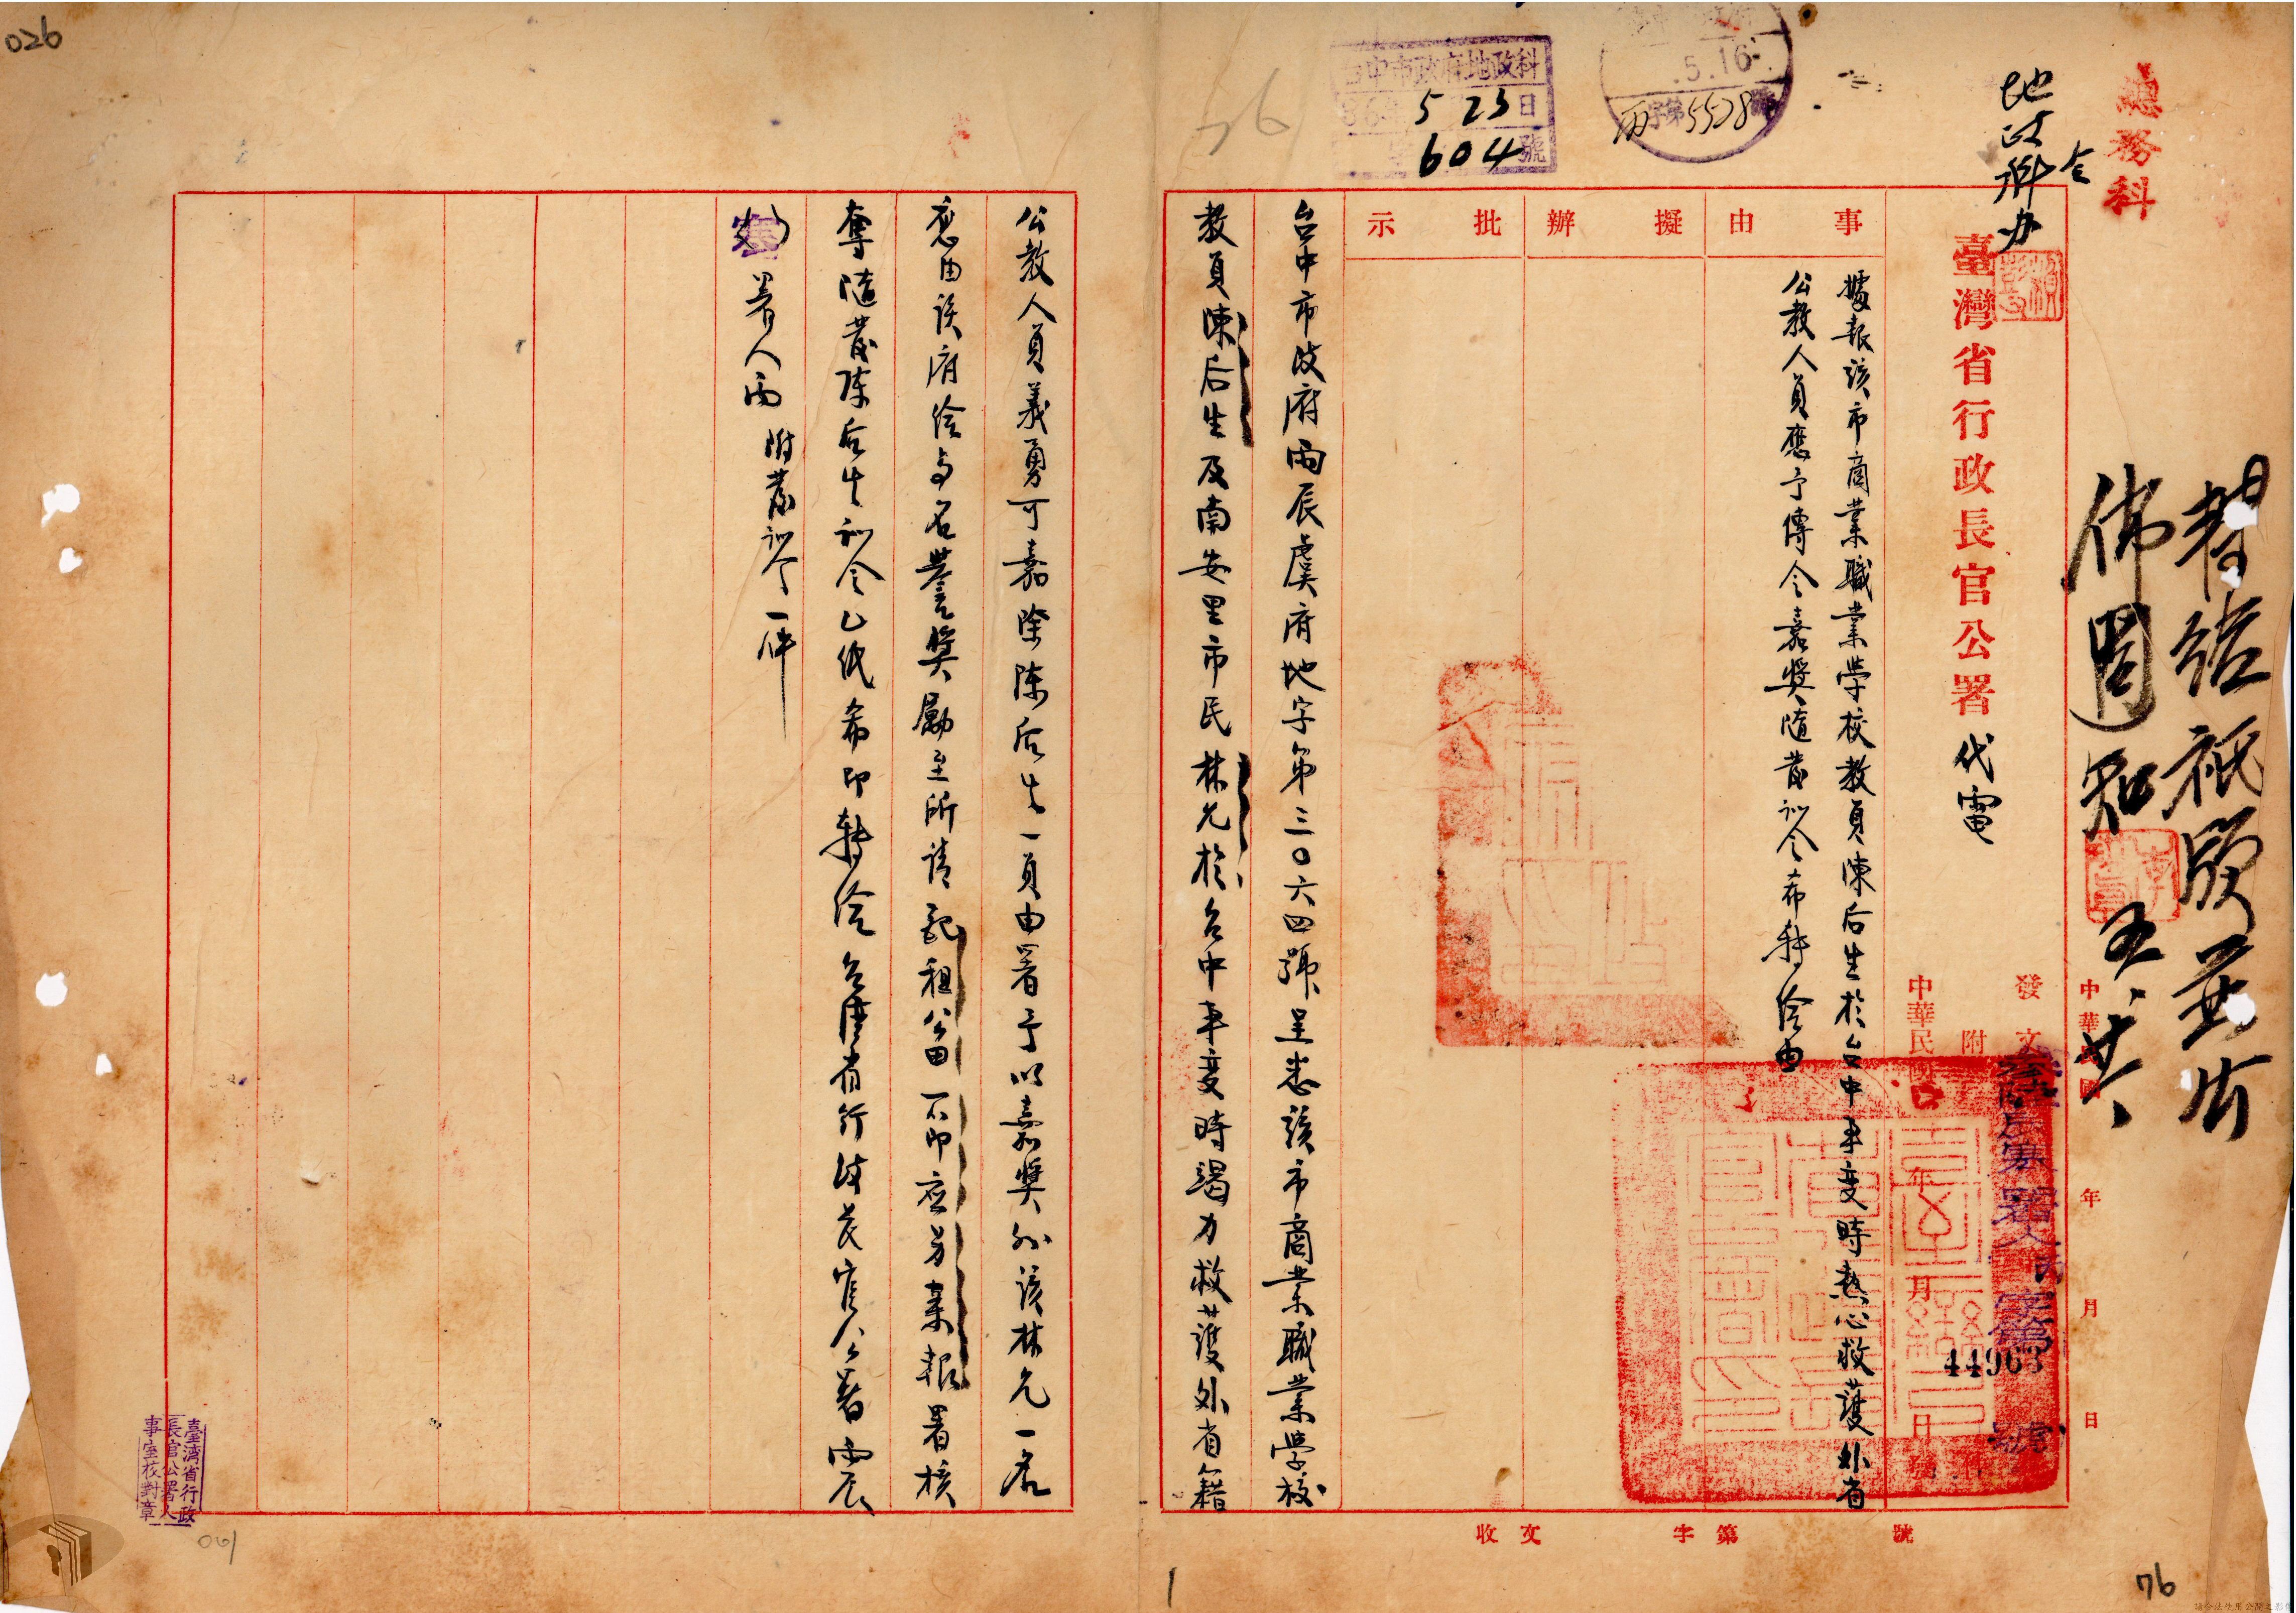 026
76
總務科
地政科办
臺灣省行政長官公署代電
中華民國 年 月 日
發文
附
署人
字第
44963
號
中華民國 年 月 日
事由
擬辦
批示
據報該市商業職業學校教員陳后生於台中事変時熱心救護外省
公教人員應予傳令嘉獎隨發訓令希轉給由
5.16
丙字第5528號
台中市政府地政科
36 5 23日
604號
台中市政府丙辰虞府地字第三〇六四號呈悉該市商業職業學校
教員陳后生及南安里市民林允於台中事变時竭力救護外省籍
公教人員義勇可嘉除陈后生一員由署予以嘉獎外該林允一名
應由该府给与名誉獎勵至所请記租公田一節应另案報署核
奪隨發陈后生訓令乙纸希即轉给台灣省行政长官公署
署人丙 附發訓令一件
臺灣省行政
長官公署人
事室校對章
收文 字第 號
001
1
76